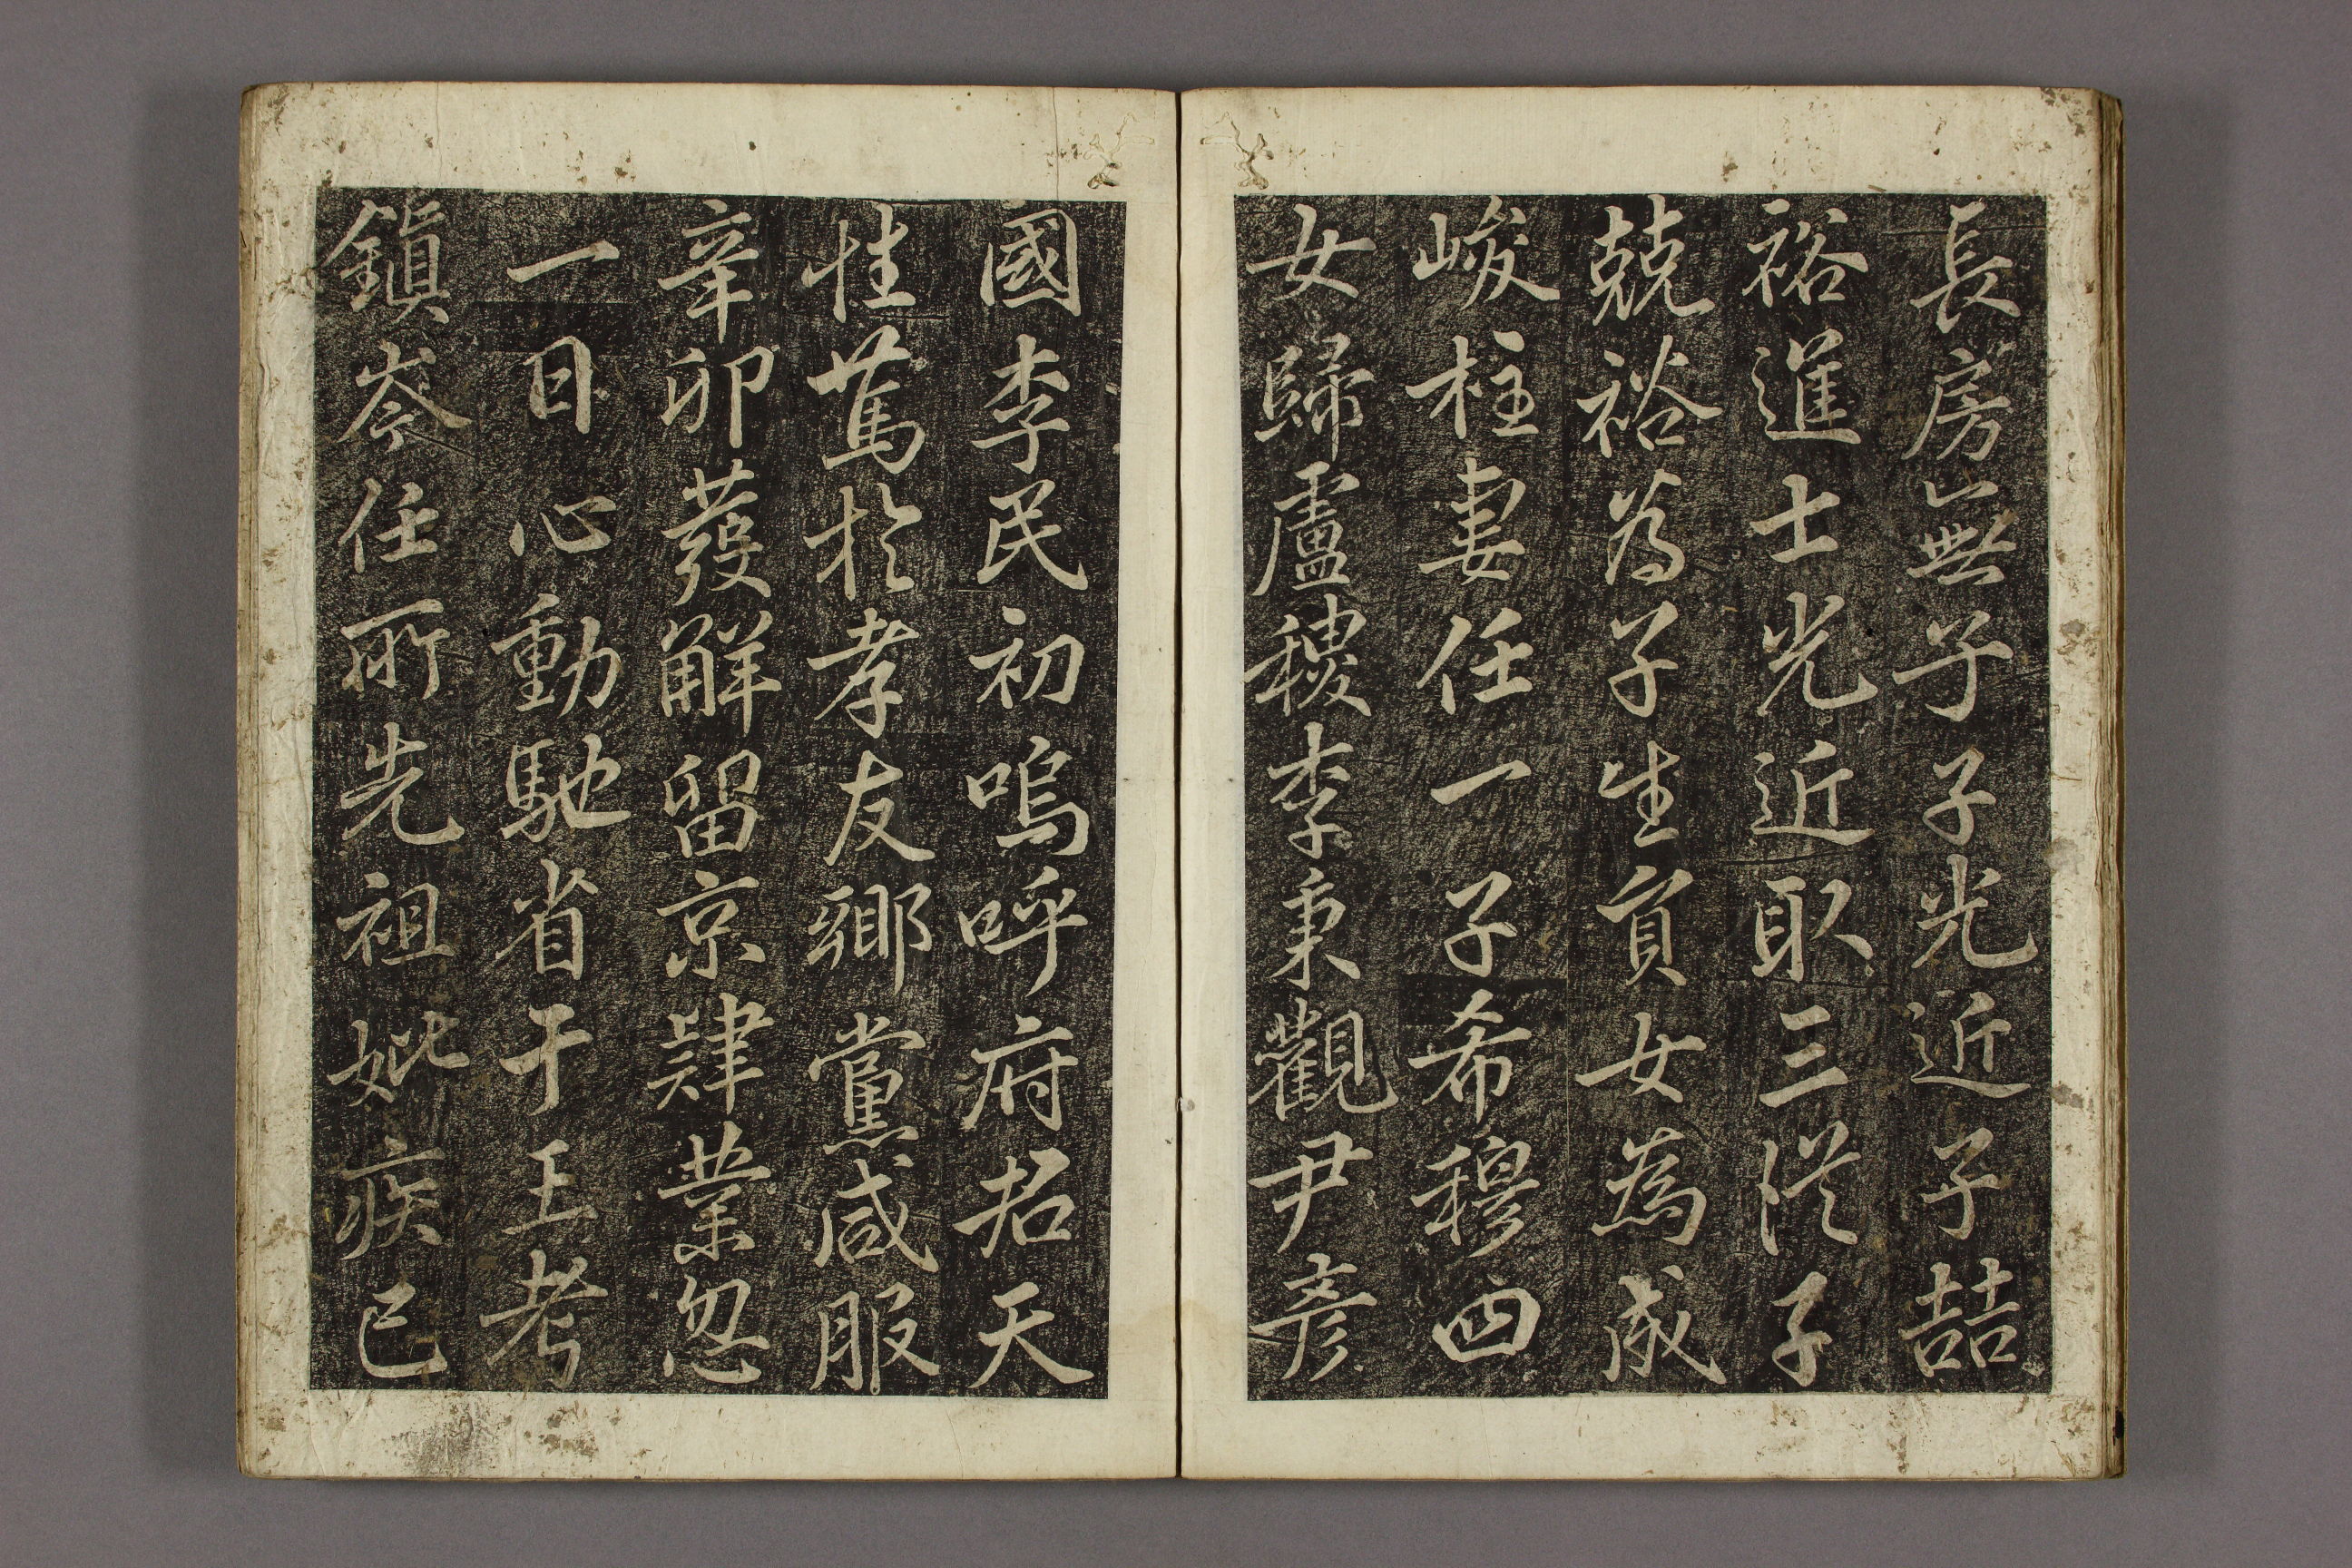 長房無子子光近子喆
裕進士光近取三從子
兢裕為子生員女為成
峻柱妻任一子希穆四
女歸盧稷李秉觀尹彥
國李民初嗚呼府君天
性篤於孝友鄉黨咸服
辛卯發解留京肄業忽
一日心動馳省于王考
鎮岑任所先祖妣疾已